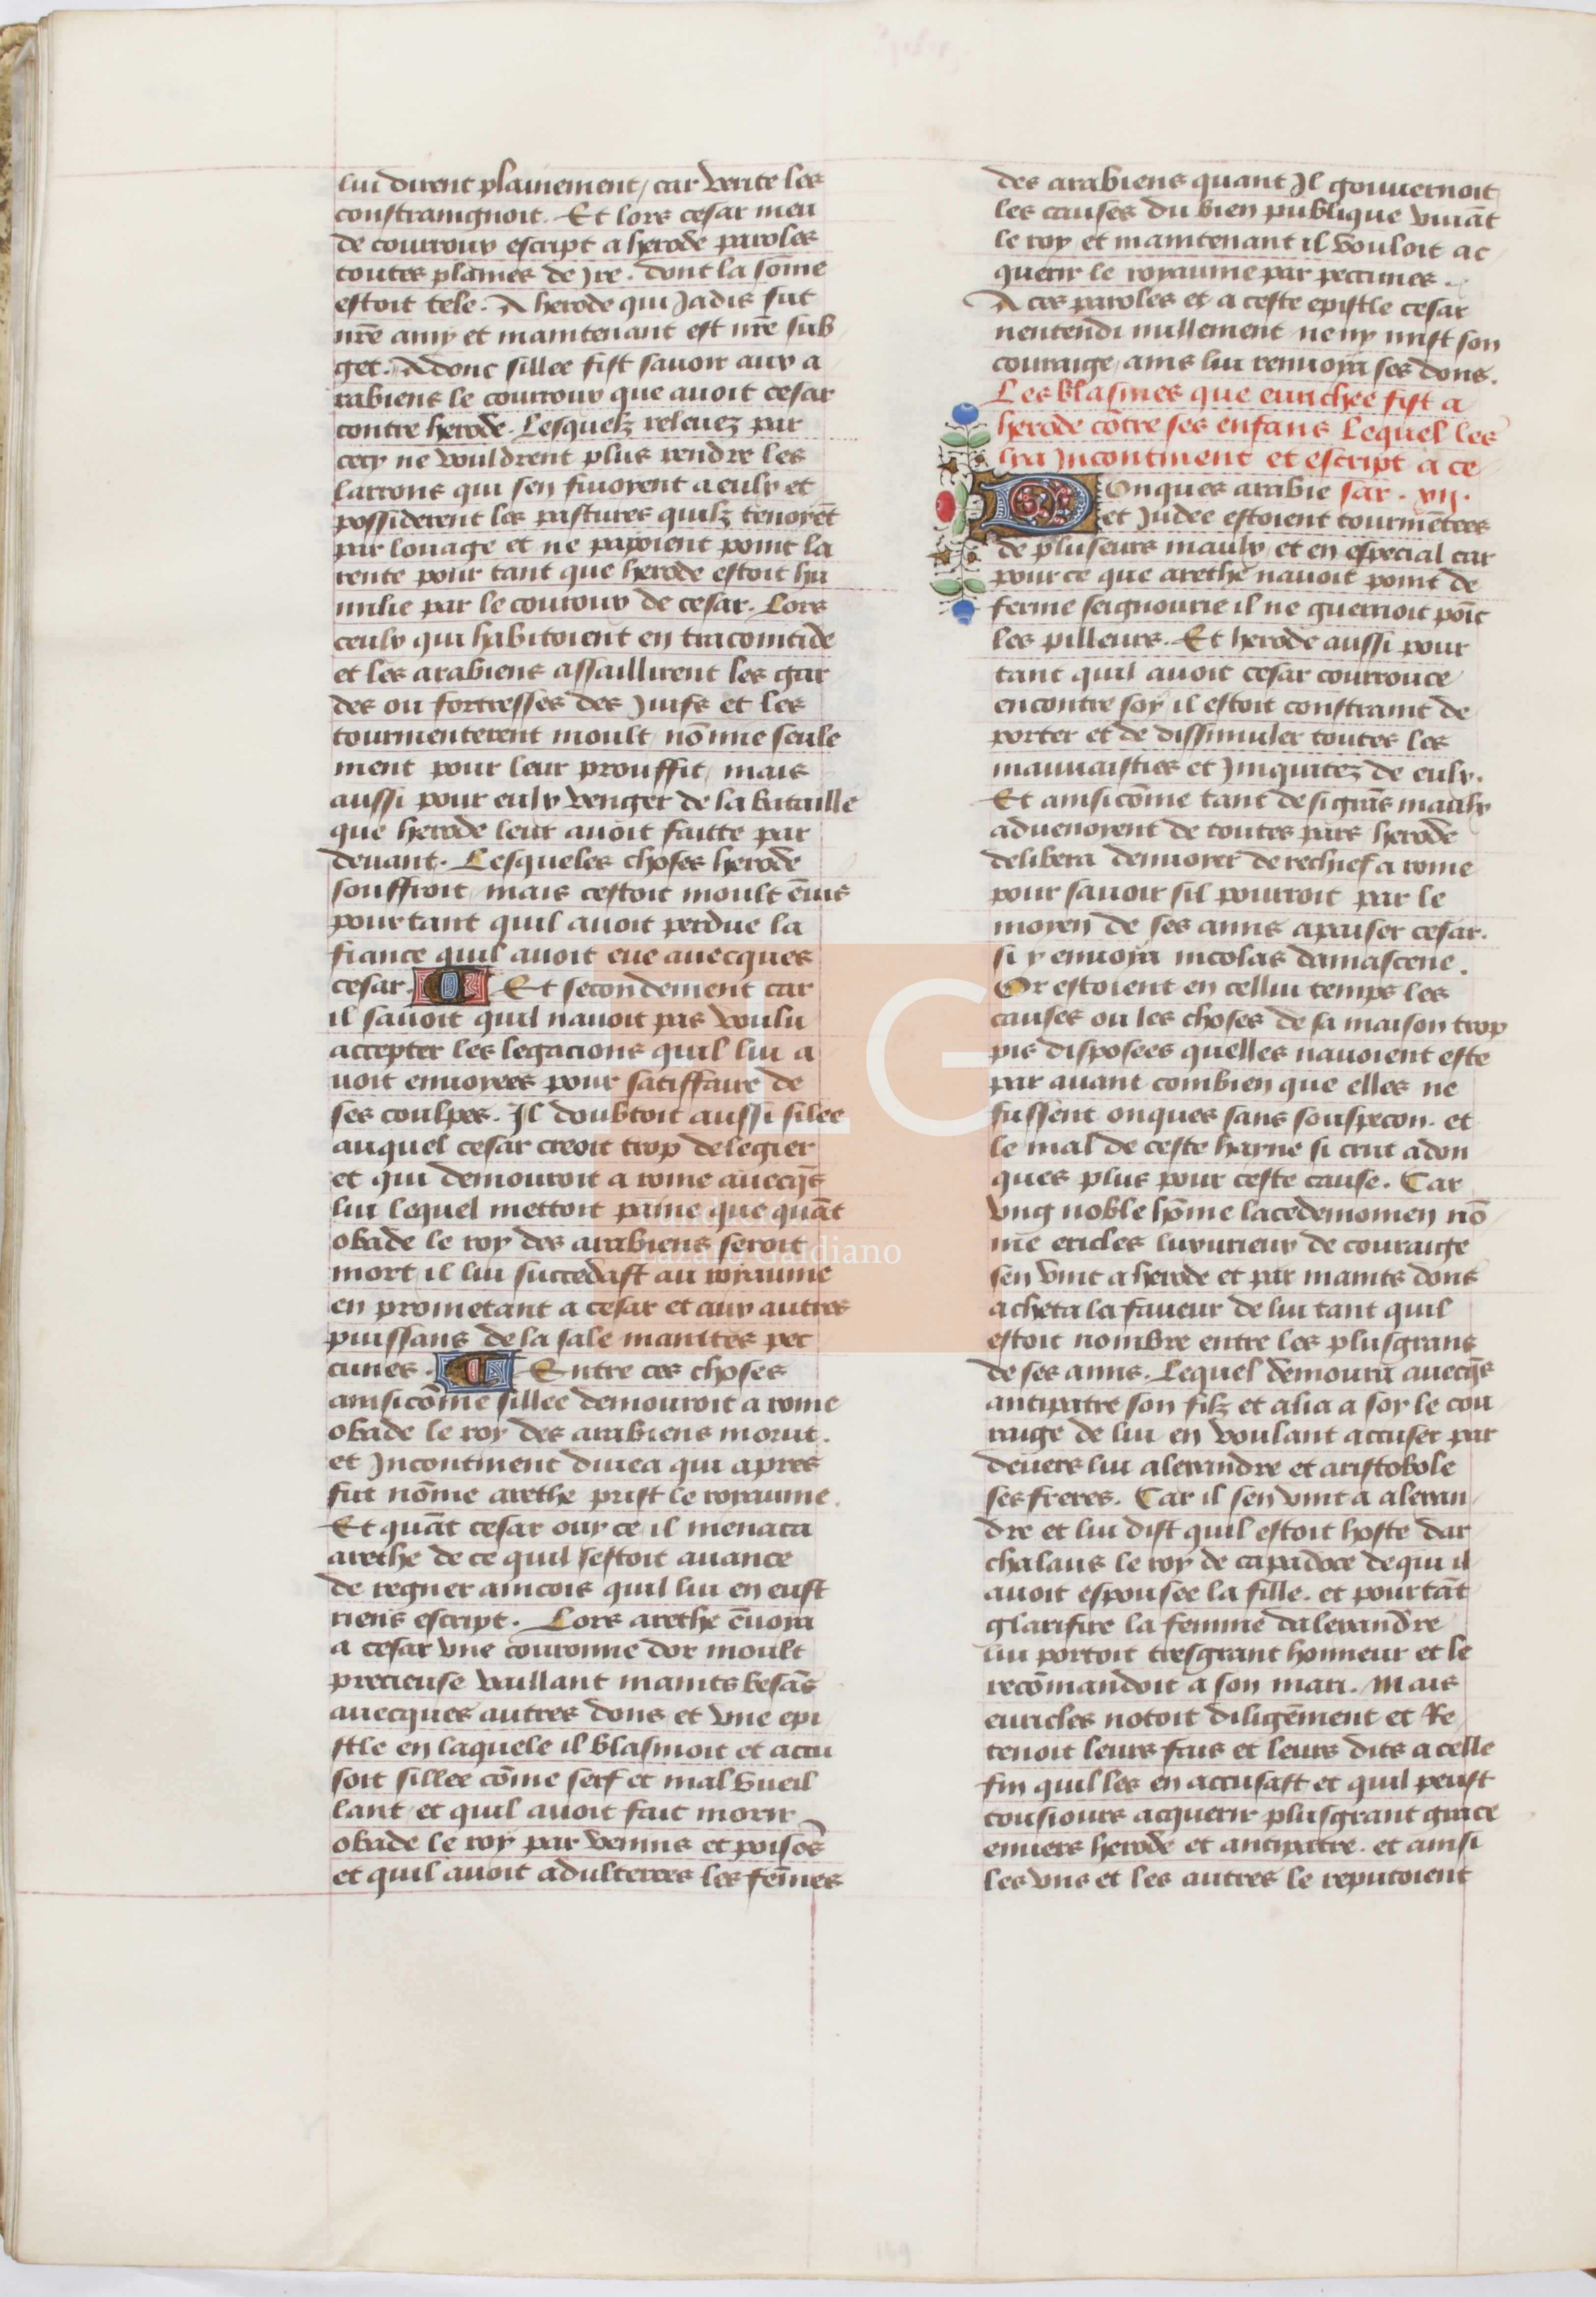 lui dirent plainement / car verite les
constraingnoit. Et lors cesar meu
de courroux escript a herode paroles
toutes plaines de jre. dont la som̄e
estoit tele. A herode qui jadis fut
nr̄e amy et maintenant est nr̄e sub
get. Adonc sillee fist savoir aux a
rabiens le courroux que avoit cesar
contre herode. Lesquelz relevez par
cecy ne vouldrent plus rendre les
larrons qui sen fuioyent a eulx et
possiderent les pastures quilz tenoyēt
par louage et ne payoient point la
rente pour tant que herode estoit hu
milie par le couroux de cesar. Lors
ceulx qui habitoient en tracomtide
et les arabiens assaillirent les gar
des ou fortresses des juifs et les
tourmenterent moult / nō mie seule
ment pour leur prouffit / mais
aussi pour eulx venger de la bataille
que herode leur avoit faitte par
devant. Lesqueles choses herode
souffroit / mais cestoit moult ēvis
pour tant quil avoit perdue la
fiance quil avoit eue avecques
cesar. Et secondement car
il savoit quil navoit pas voulu
accepter les legacions quil lui a
voit envoyees pour satiffaire de
ses coulpes. Il doubtoit aussi silee
auquel cesar creoit trop de legier
et qui demouroit a rome avecq̄s
lui lequel mettoit paine que quāt
obade le roy des arabiens seroit
mort / il lui succedast au royaume
en prometant a cesar et aux autres
puissans de la sale maintes pec
cunes. Entre ces choses
ainsi cōme sillee demouroit a rome
obade le roy des arabiens morut.
et jncontinent divea qui apres
fut nōme arethe prist le royaume.
Et quāt cesar ouy ce / il menaca
arethe de ce quil sestoit avance
de regner aincois quil lui en eust
riens escript. Lors arethe ēvoya
a cesar vne couronne dor moult
precieuse vaillant maints besās
avecques autres dons / et vne epi
stle en laquele il blasmoit et accu
soit sillee cōme serf et mal vueil
lant / et quil avoit fait morir
obade le roy par venins et poisōs
et quil avoit adulterees les fēmes
des arabiens quant Jl gouvernoit
les causes du bien publique vivāt
le roy et maintenant il vouloit ac
querir le royaume par peccunes.
A ces paroles et a ceste epistle cesar
nentendi nullement / ne ny mist son
couraige / ains lui renvoya ses dons.
Les blasmes que eurichee fist a
herode cōtre ses enfans lequel les
lya Jncontinent et escript a ce
Onques arabie sar. xij.
et judee estoient tourmētees
de pluseurs maulx et en especial car
pour ce que arethe navoit point de
ferme seignourie il ne guerrioit poīt
les pilleurs. Et herode aussi pour
tant quil avoit cesar courrouce
encontre soy / il estoit constraint de
porter et de dissimuler toutes les
mauvaisties et jniquitez de eulx.
Et ainsi cōme tant de si grās maulx
advenoyent de toutes pars herode
delibera denvoyer derechief a rome
pour savoir sil pourroit par le
moyen de ses amis apaiser cesar.
si y envoya nicolas damascene.
Or estoient en cellui temps les
causes ou les choses de sa maison trop
pis disposees quelles navoient este
par avant combien que elles ne
fussent onques sans souspecon. et
le mal de ceste hayne si crut adon
ques plus pour ceste cause. Car
vng noble hōme lacedemonien nō
me ericles luxurieux de couraige
sen vint a herode et par maints dons
acheta la faveur de lui tant quil
estoit nombre entre les plusgrans
de ses amis. Lequel demoura avecq̄s
antipatre son filz et alia a soy le cou
raige de lui en voulant accuser par
devers lui alexandre et aristobole
ses freres. Car il sen vint a alexan
dre et lui dist quil estoit hoste dar
chalaus le roy de capadoce de qui il
avoit espousee la fille. et pour tāt
glarifire la femme dalexandre
lui portoit tresgrant honneur et le
recōmandoit a son mari. Mais
euricles notoit diligēment et Re
tenoit leurs fais et leurs dits a celle
fin quil les en accusast et quil peust
tousiours acquerir plusgrant grace
envers herode et antipatre. et ainsi
les vns et les autres le reputoient
FLG
Fundación
Lázaro Galdiano